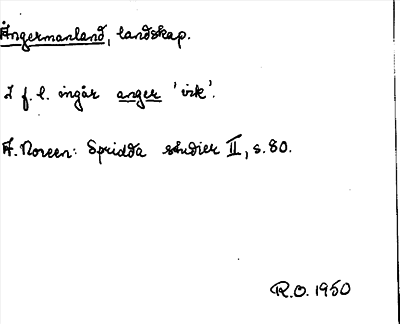 Ångermanland, landskap.
I f.l. ingår anger 'vik'.
A. Noreen: Spridda studier II, s. 80.
R.O. 1950